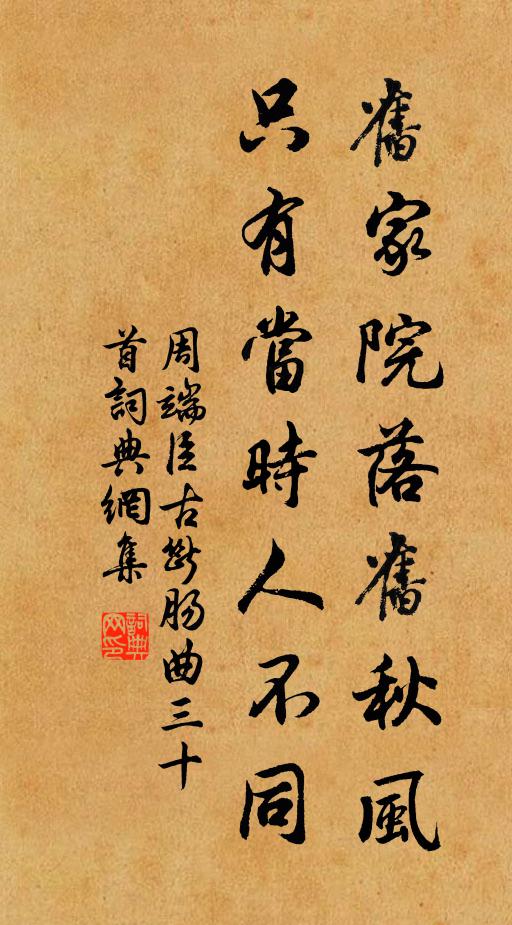 舊家院落舊秋風
只有當時人不同
周端臣古斷腸曲三十
首詞典網集
詞典
網印